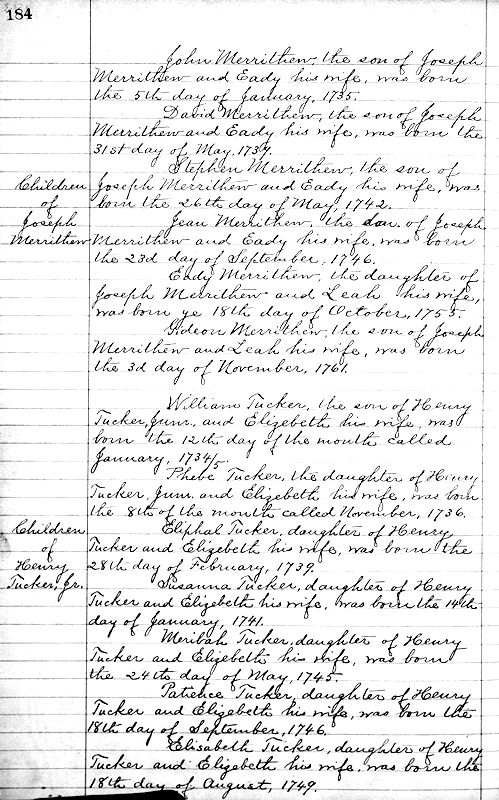 184
John Merrithew, the son of Joseph
Merrithew and Eady his wife, was born
the 5th day of January, 1735.
David Merrithew, the son of Joseph
Merrithew and Eady his wife, was born the
31st day of May, 1739.
Stephen Merrithew, the son of
Joseph Merrithew and Eady his wife, was
born the 26th day of May, 1742.
Children
of
Joseph
Merrithew
Jean Merrithew, the son of Joseph
Merrithew and Eady his wife, was born
the 23d day of September, 1746.
Eady Merrithew, the daughter of
Joseph Merrithew and Leah his wife,
was born ye 18th day of October, 1755.
Gideon Merrithew, the son of Joseph
Merrithew and Leah his wife, was born
the 3d day of November, 1761.
William Tucker, the son of Henry
Tucker, Junr. and Elizebeth his wife, was
born the 12th day of the month called
January, 1734/5.
Phebe Tucker, the daughter of Henry
Tucker, Junr. and Elizebeth his wife, was born
the 8th of the month called November, 1736.
Children
of
Henry
Tucker, Jr.
Eliphal Tucker, daughter of Henry
Tucker and Elizebeth his wife, was born the
28th day of February, 1739.
Susanna Tucker, daughter of Henry
Tucker and Elizebeth his wife, was born the 14th
day of January, 1741.
Meribah Tucker, daughter of Henry
Tucker and Elizebeth his wife, was born
the 24th day of May, 1745.
Patience Tucker, daughter of Henry
Tucker and Elizebeth his wife, was born the
18th day of September, 1746.
Elisabeth Tucker, daughter of Henry
Tucker and Elizebeth his wife, was born the
18th day of August, 1749.